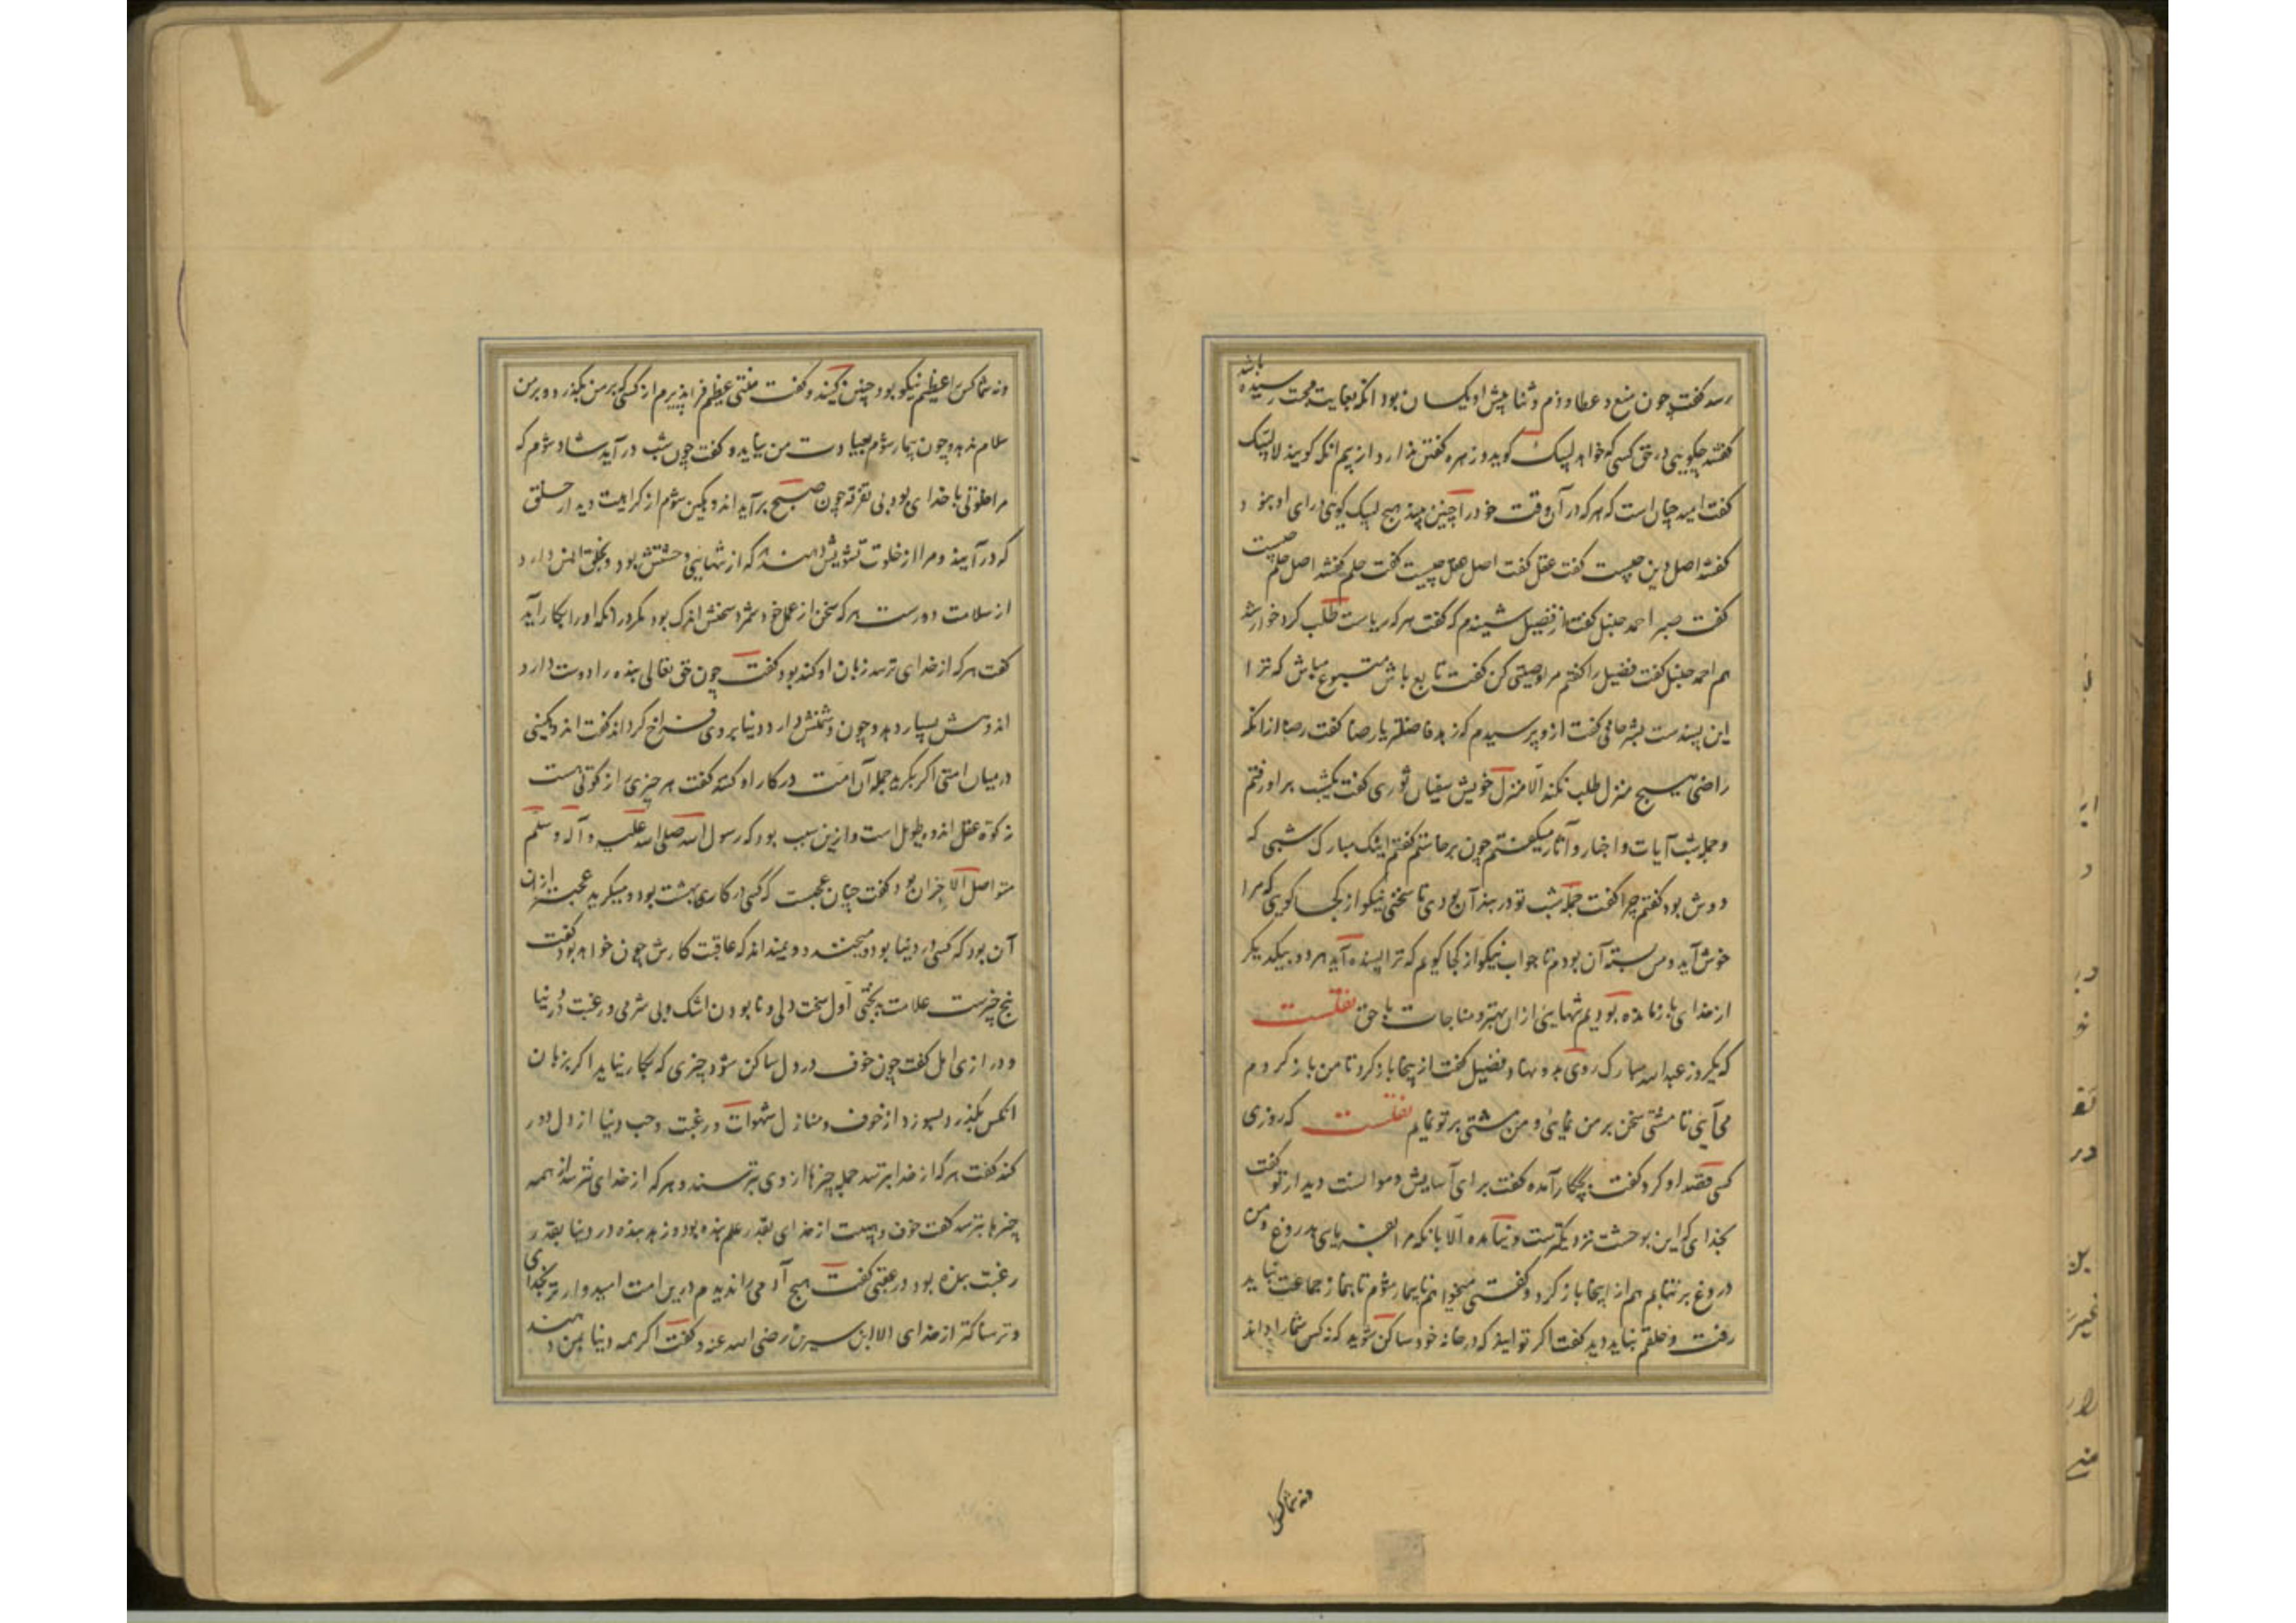 رسد گفت چون منع و عطا و ذم و ثنا پیش او یکسان بود آنکه بغایت محبت رسیده باشد
گفتند چگویی در حق کسی که خواهد لبیک گوید و زهره گفتن ندارد از بیم آنکه گویند لا لبیک
گفت امید چنان است که هرکه در آن وقت خود را چنین بیند هیچ لبیک گوی ورای او نبود
گفتند اصل دین چیست گفت عقل گفت اصل عقل چیست گفت حلم گفتند اصل حلم چیست
گفت صبر احمد حنبل گفت از فضیل شنیدم که گفت هرکه ریاست طلب کرد خوار شد
هم احمد حنبل گفت فضیل را گفتم مرا وصیتی کن گفت تابع باش متبوع مباش که ترا
این پسندست بشر حافی گفت ازو پرسیدم که زهد فاضلتر یا رضا گفت رضا از آنکه
راضی هیچ منزل طلب نکند الا منزل خویش سفیان ثوری گفت یکشب بر او رفتم
و جمله شب آیات و اخبار و آثار میگفتم چون برخاستم گفتم اینک مبارک شبی که
دوش بود گفتم چرا گفت جمله شب تو در بند آن بودی تا سخنی نیکو از کجا گویی که مرا
خوش آید و من بسته آن بودم تا جواب نیکو از کجا گویم که ترا پسنده آید هر دو بیکدیگر
از خدای باز مانده بودیم تنهایی ازان بهتر و مناجات با حق نقلست
که یکروز عبدالله مبارک روی بدو نهاد فضیل گفت از اینجا باز گرد تا من باز گردم
می آیی تا مشتی سخن بر من نمایی و من مشتی بر تو نمایم نقلست که روزی
کسی قصد او کرد گفت بچکار آمده گفت برای آسایش و موانست دیدار تو گفت
بخدای که این بوحشت نزدیکترست و نیامده الا بانکه مرا بفریبی بدروغ و من
دروغ بر تو نمایم هم از اینجا باز گرد و گفت میخواهم تا بیمار شوم تا بنماز جماعت نباید
رفت و خلقم نباید دید گفت اگر توانید که در خانه خود ساکن شوید که نه کس شما را داند
ونه شما کس
ونه شما کس را عظیم نیکو بود چنین کنید و گفت منتی عظیم فرا پذیرم از کسی که بر من بگذرد و بر من
سلام ندهد و چون بیمار شوم بعیادت من نیاید و گفت چون شب در آید شاد شوم که
مرا خلوتی با خدای بود بی تفرقه چون صبح برآید اندوهگین شوم از کراهیت دیدار خلق
که در آیند و مرا از خلوت تشویش دهند هر که از تنهایی وحشتش بود و بخلق انس دارد
از سلامت دورست هرکه سخن از عمل خود شمرد سخنش اندک بود مگر در آنکه او را بکار آید
گفت هرکه از خدای ترسد زبان او کند بود گفت چون حق تعالی بنده را دوست دارد
اندوهش بسیار دهد و چون دشمنش دارد دنیا بر وی فراخ کرداند گفت اندوهگینی
در میان امتی اگر بگرید جمله آن امت در کار او کنند گفت هر چیزی را زکوتی هست
زکوة عقل اندوه طویل است و ازین سبب بود که رسول الله صلی الله علیه و آله و سلم
متواصل الاحزان بود گفت چنان عجبست که کسی در کاری بهشت بود و میگرید عجبتر ازان
آن بود که کسی در دنیا بود و میخندد و نمیداند که عاقبت کارش چون خواهد بود گفت
پنج چیزست علامت بدبختی اول سخت دلی و نا بودن اشک و بی شرمی و رغبت در دنیا
و درازی امل گفت چون خوف در دل ساکن شود چیزی که بکار نیاید اگر بزبان
آنکس بگذرد بسوزد از خوف و منازل شهوات و رغبت و حب دنیا از دل دور
کند گفت هرکه از خدا بترسد جمله چیزها از وی بترسند و هرکه از خدای نترسد از همه
چیزها بترسد گفت خوف و هیبت از خدای بقدر علم بنده بود و زهد بنده در دنیا بقدر
رغبت بنده بود در عقبی گفت هیچ آدمی را ندیدم درین امت امیدوارتر بخدای
و ترسناکتر از خدای الا ابن سیرین رضی الله عنه و گفت اگر همه دنیا بمن دهند